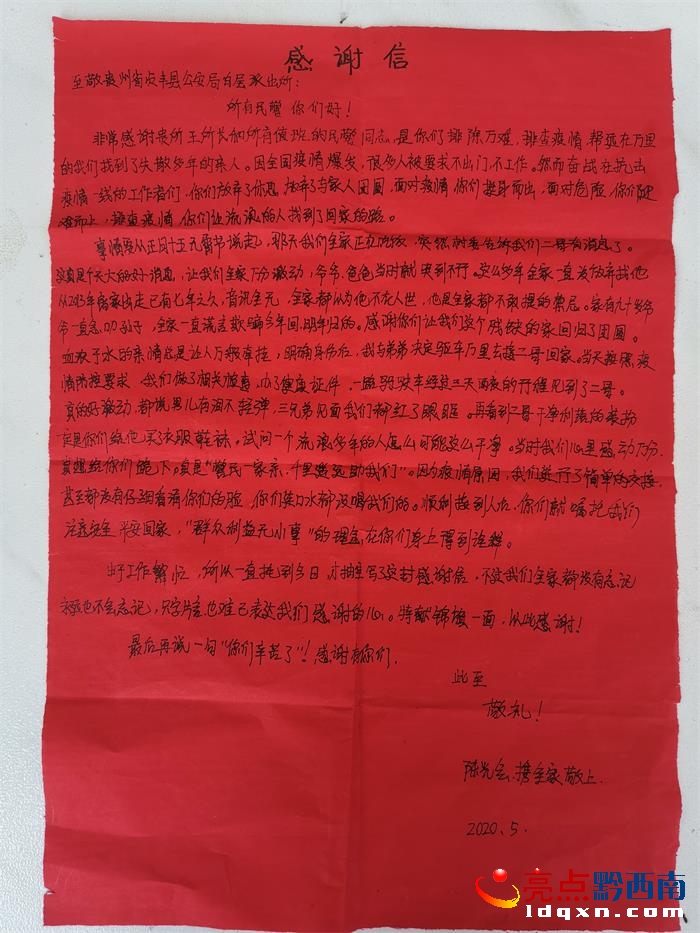 感谢信
至敬贵州省贞丰县公安局白层派出所：
所有民警 你们好！
非常感谢贵所王所长和所有值班的民警同志，是你们排除万难，排查疫情，帮远在万里
的我们找到了失散多年的亲人。因全国疫情爆发，很多人被要求不出门，不工作。然而奋战在抗击
疫情一线的工作者们，你们放弃了休息，放弃与家人团圆，面对疫情你们挺身而出，面对危险，你们迎
难而上，排查疫情，你们让流浪的人找到了回家的路。
事情要从正月十五元宵节说起，那天我们全家正在吃饭，突然村委告诉我们二哥有消息了。
这真是个天大的好消息，让我们全家万分激动，爷爷，爸爸当时就哭到不行。这么多年全家一直没放弃找他
从2013年离家出走已有七年之久，音讯全无，全家都以为他不在人世，他是全家都不敢提的禁忌。家有九十岁爷
爷一直念叨孙子，全家一直谎言欺骗今年回，明年归的。感谢你们让我们这个残缺的家回归了团圆。
血浓于水的亲情总是让人万般牵挂，明确身份后，我与弟弟决定驱车万里去接二哥回家。当天按照疫
情防控要求，我们做了相关检查，办了健康证件，一路驱车经过三天两夜的行程见到了二哥。
真的好激动，都说男儿有泪不轻弹，三兄弟见面我们都红了眼眶。再看到二哥干净利落的装扮
定是你们给他买了衣服鞋袜，试问一个流浪多年的人怎么可能这么干净。当时我们心里感动万分，
真想给你们跪下。真是“警民一家亲，千里送兄助我们”。因为疫情原因，我们进行了简单的交接，
甚至都没有仔细看清你们的脸，你们集口水都没喝我们的。顺利接到人后，你们就嘱托我们
注意安全，平安回家，“群众利益无小事”的理念在你们身上得到诠释。
由于工作繁忙，所以一直拖到今日，才抽空写这封感谢信，不过我们全家都没有忘记
永远也不会忘记，只字片言也难已表达我们感谢的心。特献锦旗一面，以此感谢！
最后再说一句“你们辛苦了”！感谢有你们。
此至
敬礼！
陈光 携全家敬上
2020、5.
亮点黔西南
ldqxn.com